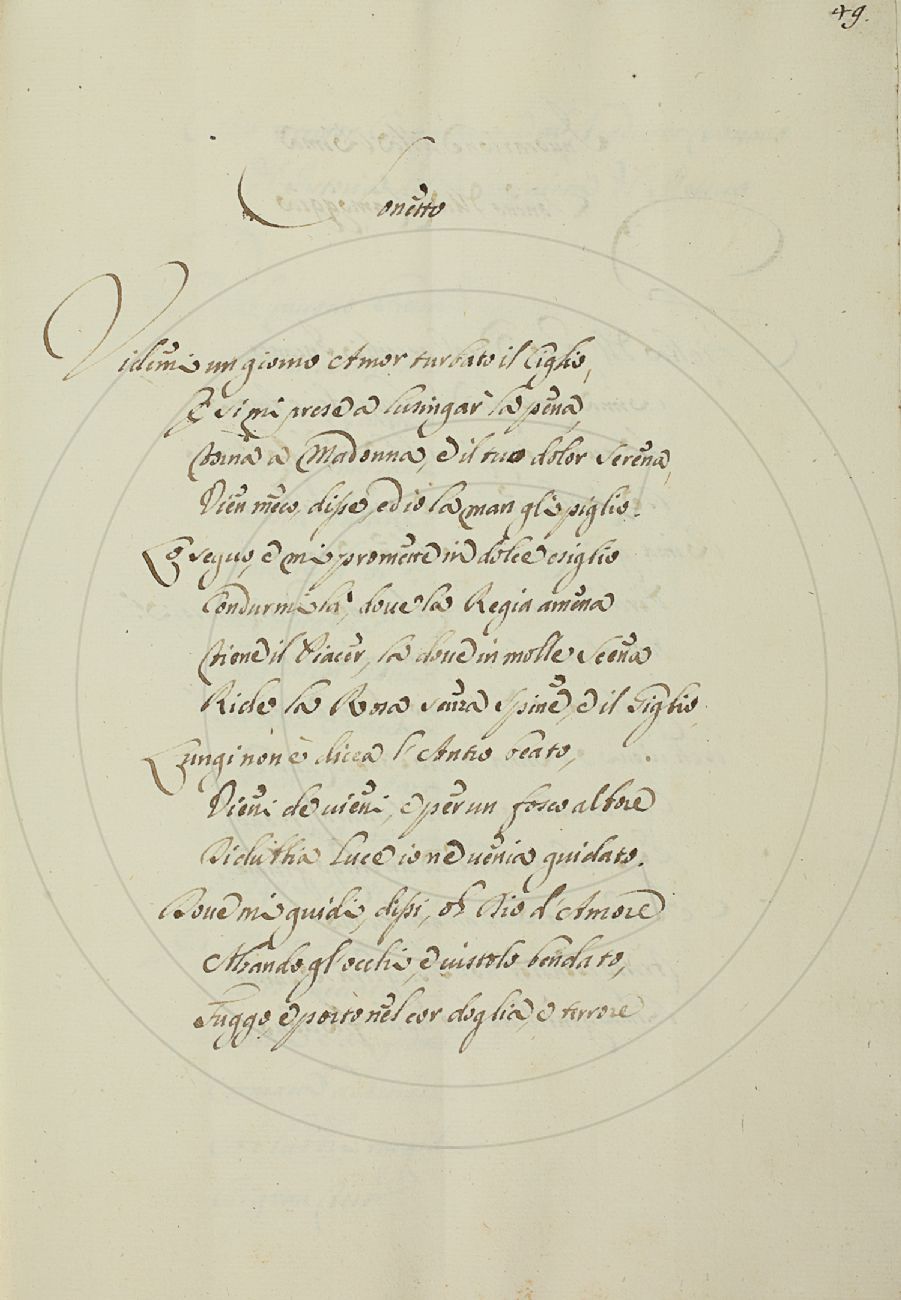 49.
Sonetto
Vidimi un giorno Amor turbato il Ciglio,
E si mi prese a lusingar la pena,
Torna a Madonna, e il tuo dolor serena,
Vieni meco, disse, ed io la man gli piglio.
Lo seguo, e mi promette in dolce esiglio
Condurmi là, dove la Regia amena
Tiene il Piacer, la dove in molle Scena
Ride la Rosa senza Spine, e il Giglio.
Lungi non è dicea l'Antro beato,
Vieni de vieni, e per un fosco albore
Più luce io ne venia guidato.
Dove mi guidi, dissi, oh Dio d'Amore
Alzando gl'occhi, e vistolo bendato,
Fuggo, e porto nel cor doglia, e terrore